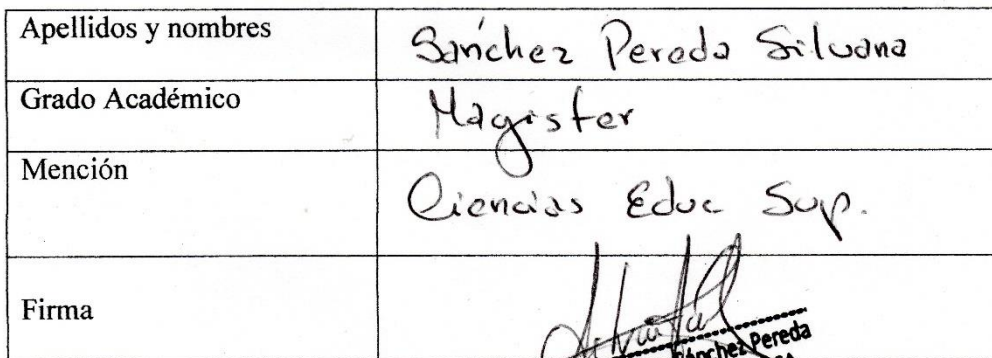 Apellidos y nombres
Sánchez Pereda Silvana
Grado Académico
Magister
Mención
Ciencias Educ Sup.
Firma
Sánchez Pereda